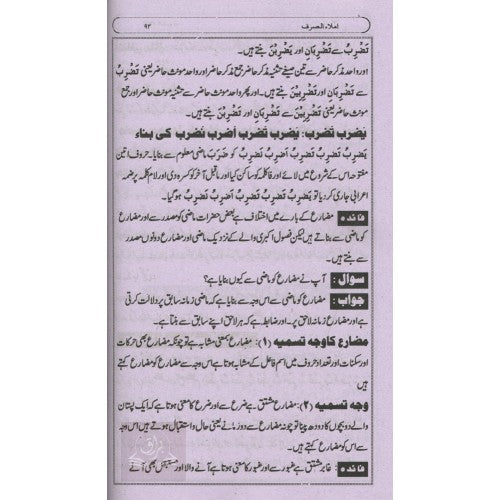 ۹۲ املاء الصرف
تَضْرِبُ سے تَضْرِبَانِ اور یَضْرِبْنَ بنتے ہیں۔
اور واحد مذکر حاضر سے تین صیغے تثنیہ مذکر حاضر جمع مذکر حاضر اور واحد مونث حاضر یعنی تَضْرِبُ
سے تَضْرِبَانِ اور تَضْرِبِیْنَ بنتے ہیں۔ اور پھر واحد مونث حاضر سے تثنیہ مونث حاضر اور جمع
مونث حاضر یعنی تَضْرِبِیْنَ سے تَضْرِبَانِ اور تَضْرِبْنَ بنتے ہیں۔
یَضْرِبُ تَضْرِبُ: یَضْرِبُ تَضْرِبُ اَضْرِبُ نَضْرِبُ کی بناء
یَضْرِبُ تَضْرِبُ تَضْرِبُ اَضْرِبُ نَضْرِبُ کو ضَرَبَ ماضی معلوم سے بنایا۔ حروف اتین
مفتوحہ اس کے شروع میں لائے اور فا کلمہ کو ساکن کیا اور ماقبل آخر کو کسرہ دی اور لام کلمہ پر ضمہ
اعرابی جاری کر دیا تو یَضْرِبُ تَضْرِبُ تَضْرِبُ اَضْرِبُ نَضْرِبُ ہو گیا۔
فائدہ مضارع کے بارے میں اختلاف ہے بعض حضرات ماضی کو مصدر سے اور مضارع
کو ماضی سے بناتے ہیں لیکن فصول اکبری والے کے نزدیک ماضی اور مضارع دونوں مصدر
سے بنتے ہیں۔
سوال: آپ نے مضارع کو ماضی سے کیوں بنایا ہے؟
جواب: مضارع کو ماضی سے اس وجہ سے بنایا ہے کہ ماضی زمانہ سابق پر دلالت کرتی
ہے اور مضارع زمانہ لاحق پر۔ اور ضابطہ ہے کہ ہر لاحق اپنے سابق سے بنتا ہے۔
مضارع کا وجہ تسمیہ (۱): مضارع بمعنی مشابہ ہے تو چونکہ مضارع بھی حرکات
اور سکنات اور تعداد حروف میں اسم فاعل کے مشابہ ہوتا ہے اس وجہ سے مضارع کو مضارع کہتے
ہیں
وجہ تسمیہ (۲): مضارع مشتق ہے ضرع سے اور ضرع کا معنی ہوتا ہے کہ ایک پستان
والے دو بچوں کا دودھ پینا تو چونکہ مضارع سے دو زمانے یعنی حال و استقبال ہوتے ہیں اس وجہ
سے اس کو مضارع کہتے ہیں۔
فائدہ غابر مشتق ہے غبور سے اور غبور کا معنی ہوتا ہے آنے والا اور مستقبل بھی آنے